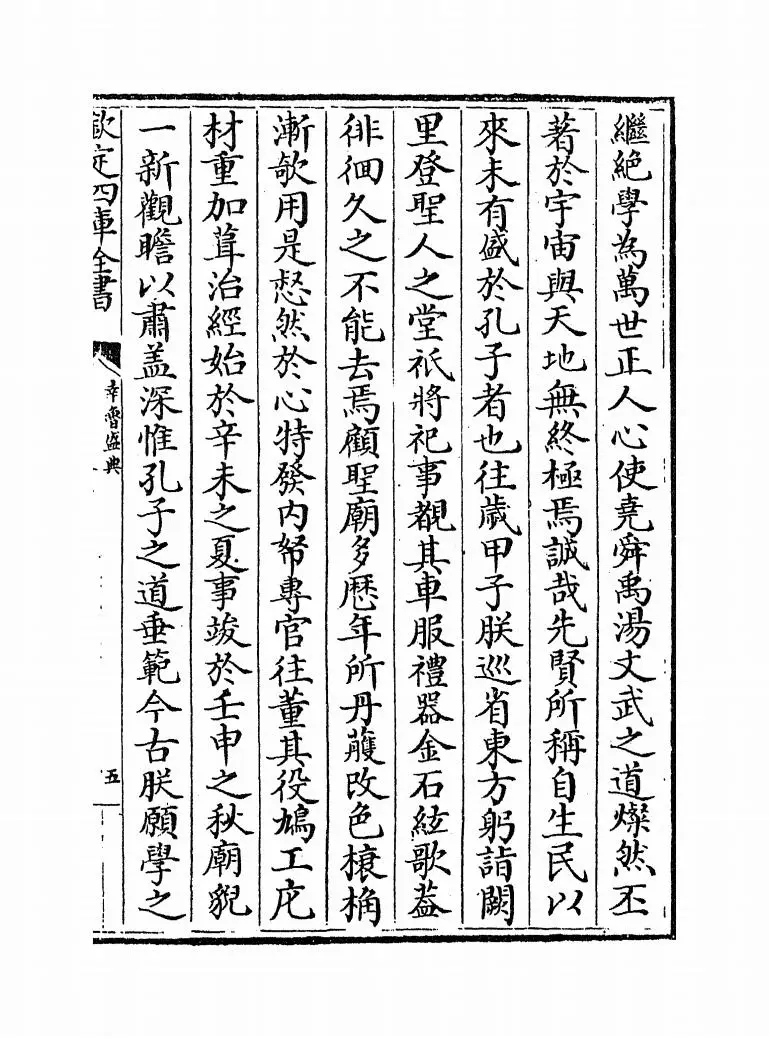 繼絶學為萬世正人心使堯舜禹湯文武之道燦然丕
著於宇宙與天地無終極焉誠哉先賢所稱自生民以
來未有盛於孔子者也往歲甲子朕巡省東方躬詣闕
里登聖人之堂祇將祀事覩其車服禮器金石絃歌葢
徘徊久之不能去焉顧聖廟多歴年所丹雘改色榱桷
漸欹用是惄然於心特發内帑專官往董其役鳩工庀
材重加葺治經始於辛未之夏事竣於壬申之秋廟貌
一新觀瞻以肅盖深惟孔子之道垂範今古朕願學之
欽定四庫全書
幸魯盛典
五